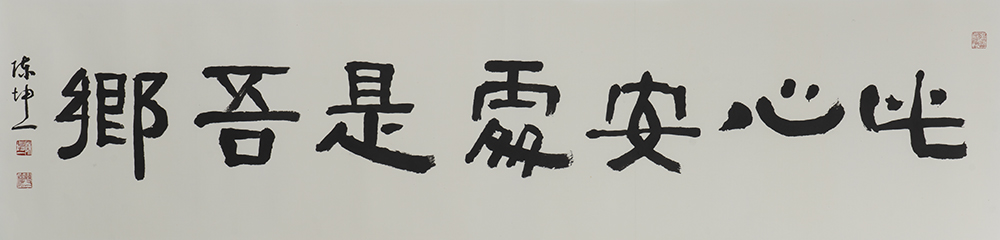 此心安處是吾鄉
陳坤一